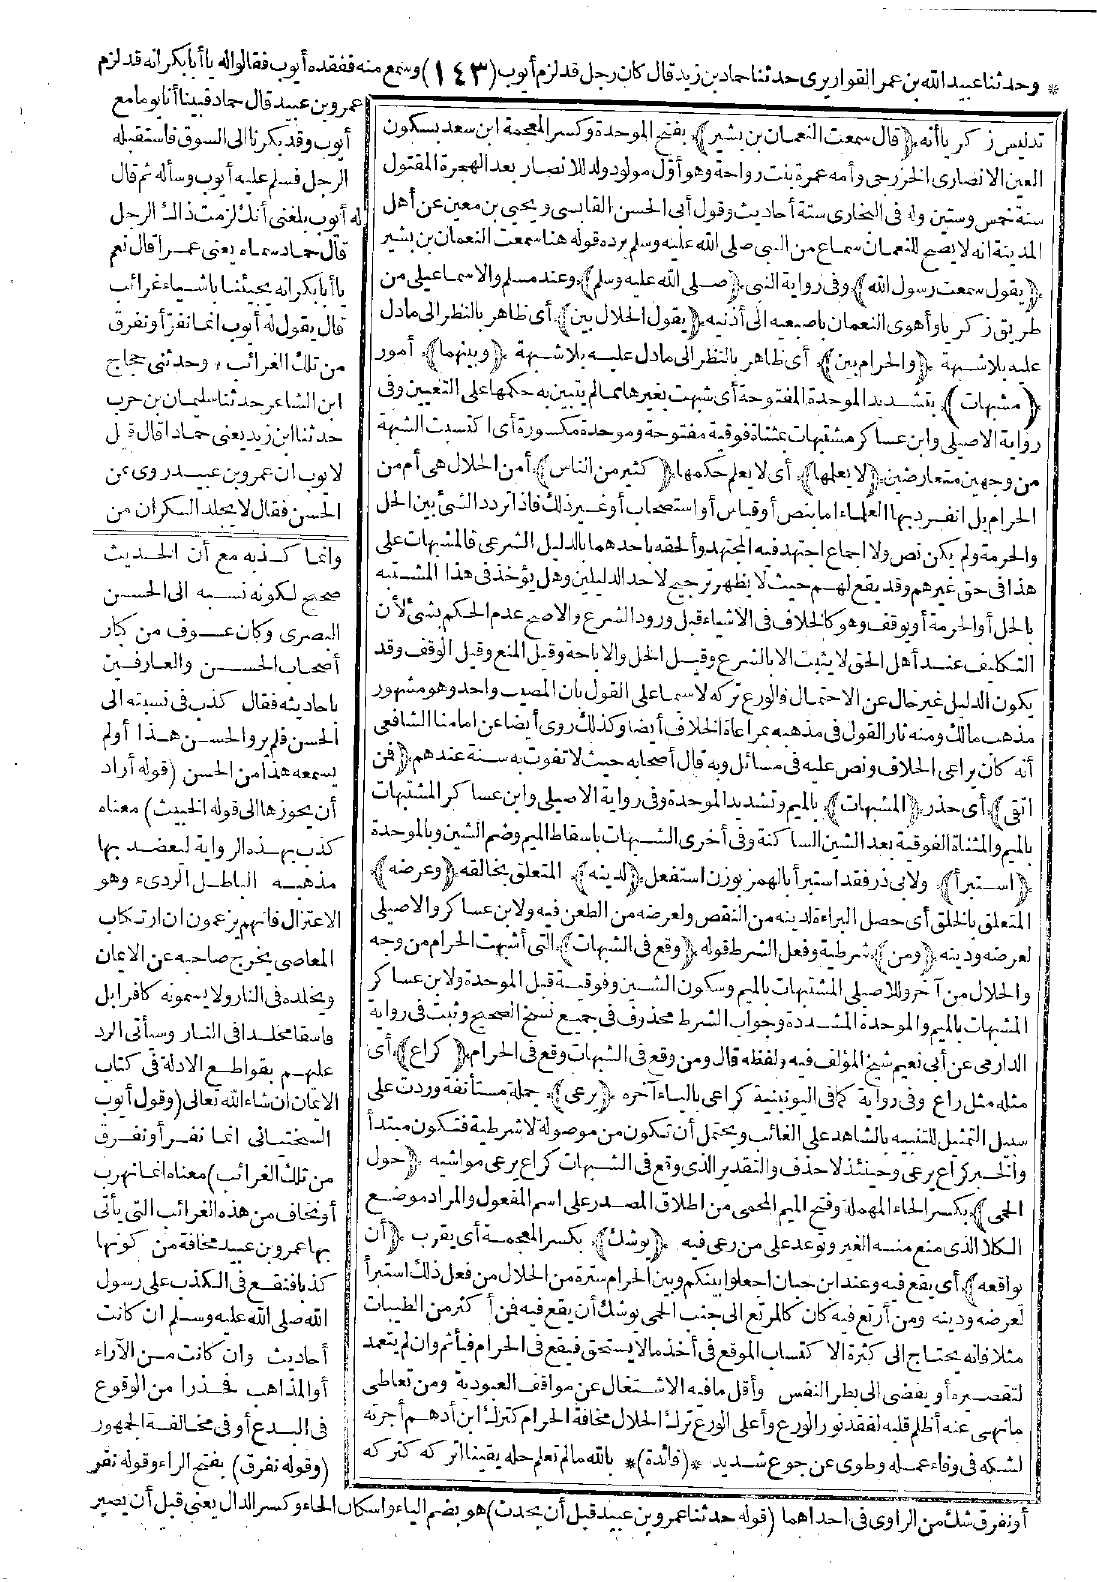 * وحدثنا عبيد الله بن عمر القواريرى حدثنا حماد بن زيد قال كان رجل قد لزم أيوب (١٤٣) وسمع منه ففقده أيوب فقالوا له يا أبا بكر انه قد لزم
عمرو بن عبيد قال حماد فبينا أنا يوما مع
أيوب وقد بكرنا الى السوق فاستقبله
الرجل فسلم عليه أيوب وسأله ثم قال
له أيوب بلغنى أنك لزمت ذاك الرجل
قال حماد سماه يعنى عمرا قال نعم
يا أبا بكر انه يجيئنا باشياء غرائب
قال يقول له أيوب انما نفر أو نفرق
من تلك الغرائب * وحدثنى حجاج
ابن الشاعر حدثنا سليمان بن حرب
حدثنا ابن زيد يعنى حمادا قال قيل
لايوب ان عمرو بن عبيد روى عن
الحسن فقال لا يجلد السكران من
وانما كذبه مع أن الحديث
صحيح لكونه نسبه الى الحسن
البصرى وكان عوف من كبار
أصحاب الحسن والعارفين
باحاديثه فقال كذب فى نسبته الى
الحسن فلم يرو الحسن هذا أولم
يسمعه هذا من الحسن (قوله أراد
أن يحوزها الى قوله الخبيث) معناه
كذب بهذه الرواية ليعضد بها
مذهبه الباطل الردىء وهو
الاعتزال فانهم يزعمون ان ارتكاب
المعاصى يخرج صاحبه عن الايمان
ويخلده فى النار ولا يسمونه كافرا بل
فاسقا مخلدا فى النار وسيأتى الرد
عليهم بقواطع الادلة فى كتاب
الايمان ان شاء الله تعالى (وقول أيوب
السختيانى انما نفر أو نفرق
من تلك الغرائب) معناه انما نهرب
أو نخاف من هذه الغرائب التى يأتى
بها عمرو بن عبيد مخافة من كونها
كذبا فنقع فى الكذب على رسول
الله صلى الله عليه وسلم ان كانت
أحاديث وان كانت من الآراء
أو المذاهب فحذرا من الوقوع
فى البدع أو فى مخالفة الجمهور
(وقوله نفرق) بفتح الراء وقوله نفر
أو نفرق شك من الراوى فى احداهما (قوله حدثنا عمرو بن عبيد قبل أن يحدث) هو بضم الياء واسكان الحاء وكسر الدال يعنى قبل أن يصير
تدليس زكريا أنه ﴿قال سمعت النعمان بن بشير﴾ بفتح الموحدة وكسر المعجمة ابن سعد بسكون
العين الانصارى الخزرجى وأمه عمرة بنت رواحة وهو أول مولود ولد للانصار بعد الهجرة المقتول
سنة خمس وستين وله فى البخارى ستة أحاديث وقول أبى الحسن القابسى ويحيى بن معين عن أهل
المدينة انه لا يصح للنعمان سماع من النبى صلى الله عليه وسلم يرده قوله هنا سمعت النعمان بن بشير
﴿يقول سمعت رسول الله﴾ وفى رواية النبى ﴿صلى الله عليه وسلم﴾ وعند مسلم والاسماعيلى من
طريق زكريا وأهوى النعمان باصبعيه الى أذنيه ﴿يقول الحلال بين﴾ أى ظاهر بالنظر الى مادل
عليه بلا شبهة ﴿والحرام بين﴾ أى ظاهر بالنظر الى مادل عليه بلا شبهة ﴿وبينهما﴾ أمور
﴿مشبهات﴾ بتشديد الموحدة المفتوحة أى شبهت بغيرها مما لم يتبين به حكمها على التعيين وفى
رواية الاصيلى وابن عساكر مشتبهات بمثناة فوقية مفتوحة وموحدة مكسورة أى اكتسبت الشبهة
من وجهين متعارضين ﴿لا يعلمها﴾ أى لا يعلم حكمها ﴿كثير من الناس﴾ أمن الحلال هى أم من
الحرام بل انفرد بها العلماء اما بنص أو قياس أو استصحاب أو غير ذلك فاذا تردد الشئ بين الحل
والحرمة ولم يكن نص ولا اجماع اجتهد فيه المجتهد وألحقه باحدهما بالدليل الشرعى فالمشبهات على
هذا فى حق غيرهم وقد يقع لهم حيث لا يظهر ترجيح لاحد الدليلين وهل يؤخذ فى هذا المشتبه
بالحل أو الحرمة أو يوقف وهو كالخلاف فى الاشياء قبل ورود الشرع والاصح عدم الحكم بشئ لأن
التكليف عند أهل الحق لا يثبت الا بالشرع وقيل الحل والاباحة وقيل المنع وقيل الوقف وقد
يكون الدليل غير خال عن الاحتمال فالورع تركه لا سيما على القول بان المصيب واحد وهو مشهور
مذهب مالك ومنه ثار القول فى مذهبه بمراعاة الخلاف أيضا وكذلك روى أيضا عن امامنا الشافعى
أنه كان يراعى الخلاف ونص عليه فى مسائل وبه قال أصحابه حيث لا تفوت به سنة عندهم ﴿فمن
اتقى﴾ أى حذر ﴿المشبهات﴾ بالميم وتشديد الموحدة وفى رواية الاصيلى وابن عساكر المشتبهات
بالميم والمثناة الفوقية بعد الشين الساكنة وفى أخرى الشبهات باسقاط الميم وضم الشين وبالموحدة
﴿استبرأ﴾ ولابى ذر فقد استبرأ بالهمز بوزن استفعل ﴿لدينه﴾ المتعلق بخالقه ﴿وعرضه﴾
المتعلق بالخلق أى حصل البراءة لدينه من النقص ولعرضه من الطعن فيه ولابن عساكر والاصيلى
لعرضه ودينه ﴿ومن﴾ شرطية وفعل الشرط قوله ﴿وقع فى الشبهات﴾ التى أشبهت الحرام من وجه
والحلال من آخر وللاصيلى المشتبهات بالميم وسكون الشين وفوقية قبل الموحدة ولابن عساكر
المشبهات بالميم والموحدة المشددة وجواب الشرط محذوف فى جميع نسخ الصحيح وثبت فى رواية
الدارمى عن أبى نعيم شيخ المؤلف فيه ولفظه قال ومن وقع فى الشبهات وقع فى الحرام ﴿كراع﴾ أى
مثله مثل راع وفى رواية كما فى اليونينية كراعى بالياء آخره ﴿يرعى﴾ جملة مستأنفة وردت على
سبيل التمثيل للتنبيه بالشاهد على الغائب ويحتمل أن تكون من موصولة لا شرطية فتكون مبتدأ
والخبر كراع يرعى وحينئذ لا حذف والتقدير الذى وقع فى الشبهات كراع يرعى مواشيه ﴿حول
الحمى﴾ بكسر الحاء المهملة وفتح الميم المحمى من اطلاق المصدر على اسم المفعول والمراد موضع
الكلا الذى منع منه الغير وتوعد على من رعى فيه ﴿يوشك﴾ بكسر المعجمة أى يقرب ﴿أن
يواقعه﴾ أى يقع فيه وعند ابن حبان اجعلوا بينكم وبين الحرام سترة من الحلال من فعل ذلك استبرأ
لعرضه ودينه ومن أرتع فيه كان كالمرتع الى جنب الحمى يوشك أن يقع فيه فمن أكثر من الطيبات
مثلا فانه يحتاج الى كثرة الاكتساب الموقع فى أخذ مالا يستحق فيقع فى الحرام فيأثم وان لم يتعمد
لتقصيره أو يفضى الى بطر النفس وأقل ما فيه الاشتغال عن مواقف العبودية ومن تعاطى
ما نهى عنه أظلم قلبه لفقد نور الورع وأعلى الورع ترك الحلال مخافة الحرام كترك ابن أدهم أجرته
لشكه فى وفاء عمله وطوى عن جوع شديد *(فائدة)* بالله ما لم تعلم حله يقينا اتركه كتركه